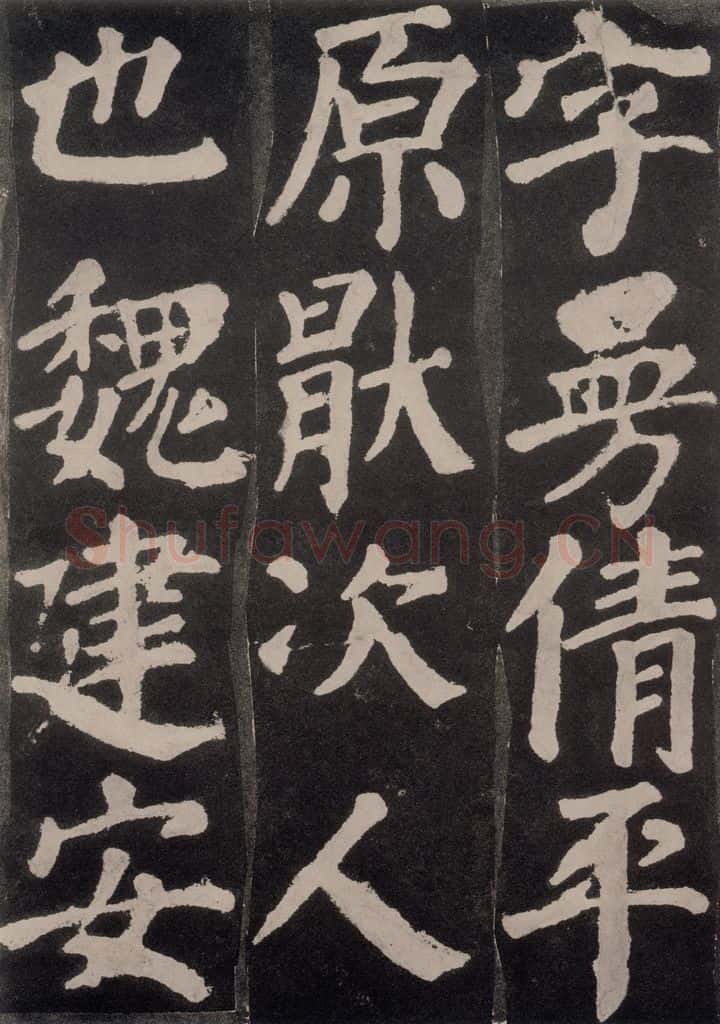 字曼倩平
原猒次人
也魏建安
Shufawang.CN